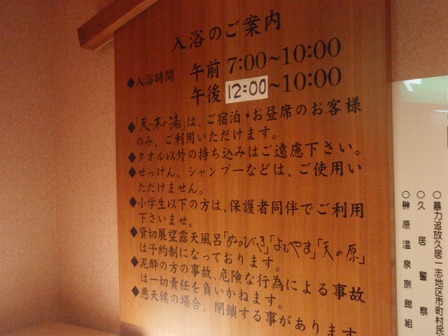 入浴のご案内
◆入浴時間 午前 7:00~10:00
午後 12:00~10:00
◆「天の湯」は、ご宿泊・お昼席のお客様
のみ、ご利用いただけます。
◆タオル以外の持ち込みはご遠慮下さい。
◆せっけん、シャンプーなどは、ご使用い
ただけません。
◆小学生以下の方は、保護者同伴でご利用
下さいませ。
◆貸切展望露天風呂「 」「 」「天の原」
は予約制になっております。
◆泥酔の方の事故、危険な行為による事故
は一切責任を負いかねます。
◆悪天候の場合、閉鎖する事があります
○暴力追放久居一志地区市町村民
○久居警察
○榊原温泉旅館組